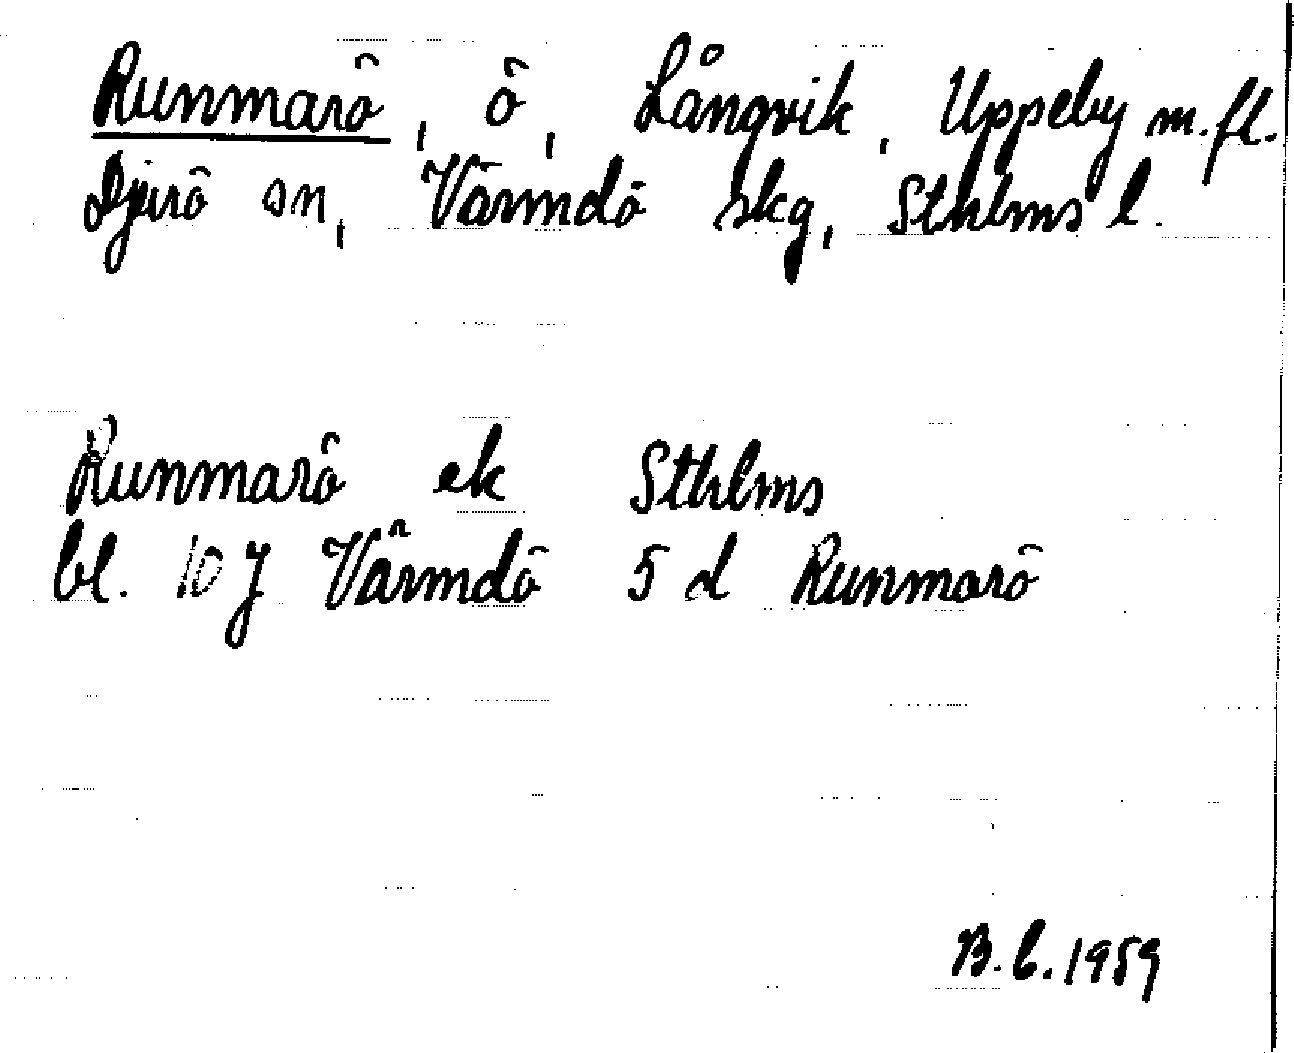 Runmarö, ö, Långvik, Uppeby m.fl.
Djurö sn, Värmdö skg, Sthlms l.
Runmarö ek Sthlms
bl. 10 J Värmdö 5 d Runmarö
B.C. 1959